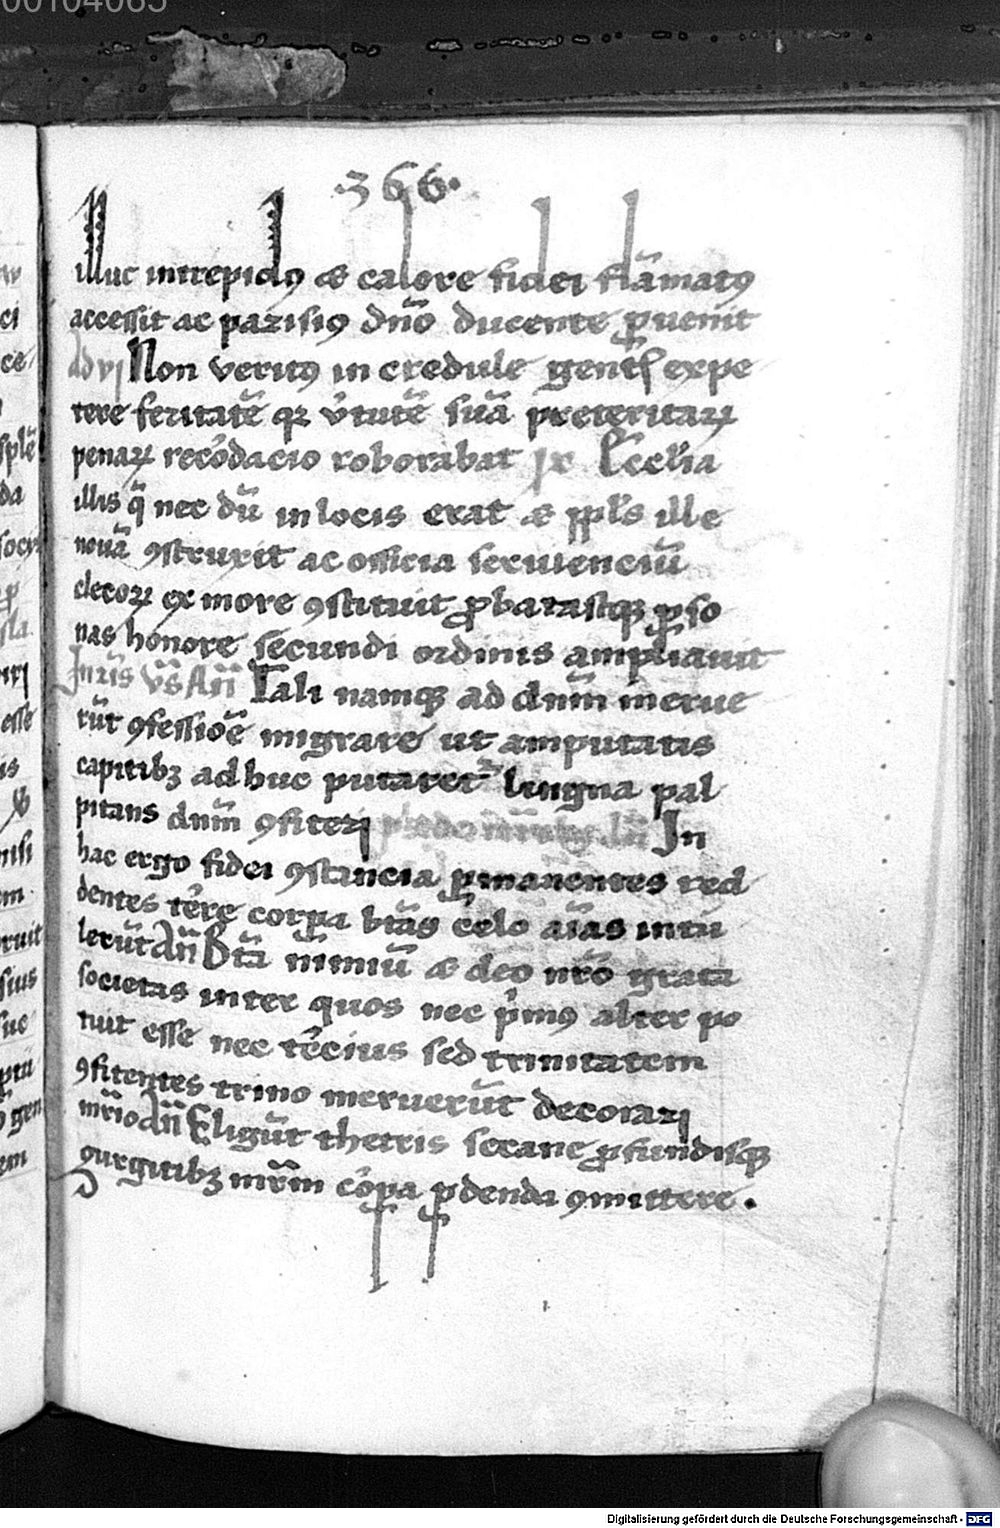 00104065
·366·
illuc intrepidꝰ ac calore fidei flāmatꝰ
accessit ac parisiꝰ dño ducente ꝑuenit
Ad vi Non veritꝰ in credule gentis expe
tere feritatē qꝛ v̓tutē suā preteritaꝝ
penaꝝ recordacio roborabat Ecclīa
illis q̄ nec dū in locis erat et ppl̓s ille
nouā ꝯstruxit ac officia seruienciū
clericoꝝ ex more ꝯstituit ꝓbatasqꝫ ꝑso
nas honore secundi ordinis ampliauit
Añ Tali namqꝫ ad dnm̄ merue
rūt ꝯfessiōe migrare ut amputatis
capitibꝫ adhuc putaretᷣ lingua pal
pitans dnm̄ ꝯfiteri In
hac ergo fidei ꝯstancia ꝑmanentes red
dentes tēre corpa btās celo aīas intu
lerūt Añ Btā nimiū et deo nrō grata
societas inter quos nec p̓mꝰ alter po
tuit esse nec tēcius sed trinitatem
ꝯfitentes trino meruerūt decorari
mr̄io Añ Eligūt thetris secane ꝓfundisqꝫ
gurgitibꝫ mr̄m corpa ꝑdenda ꝯmittere .
Digitalisierung gefördert durch die Deutsche Forschungsgemeinschaft - DFG